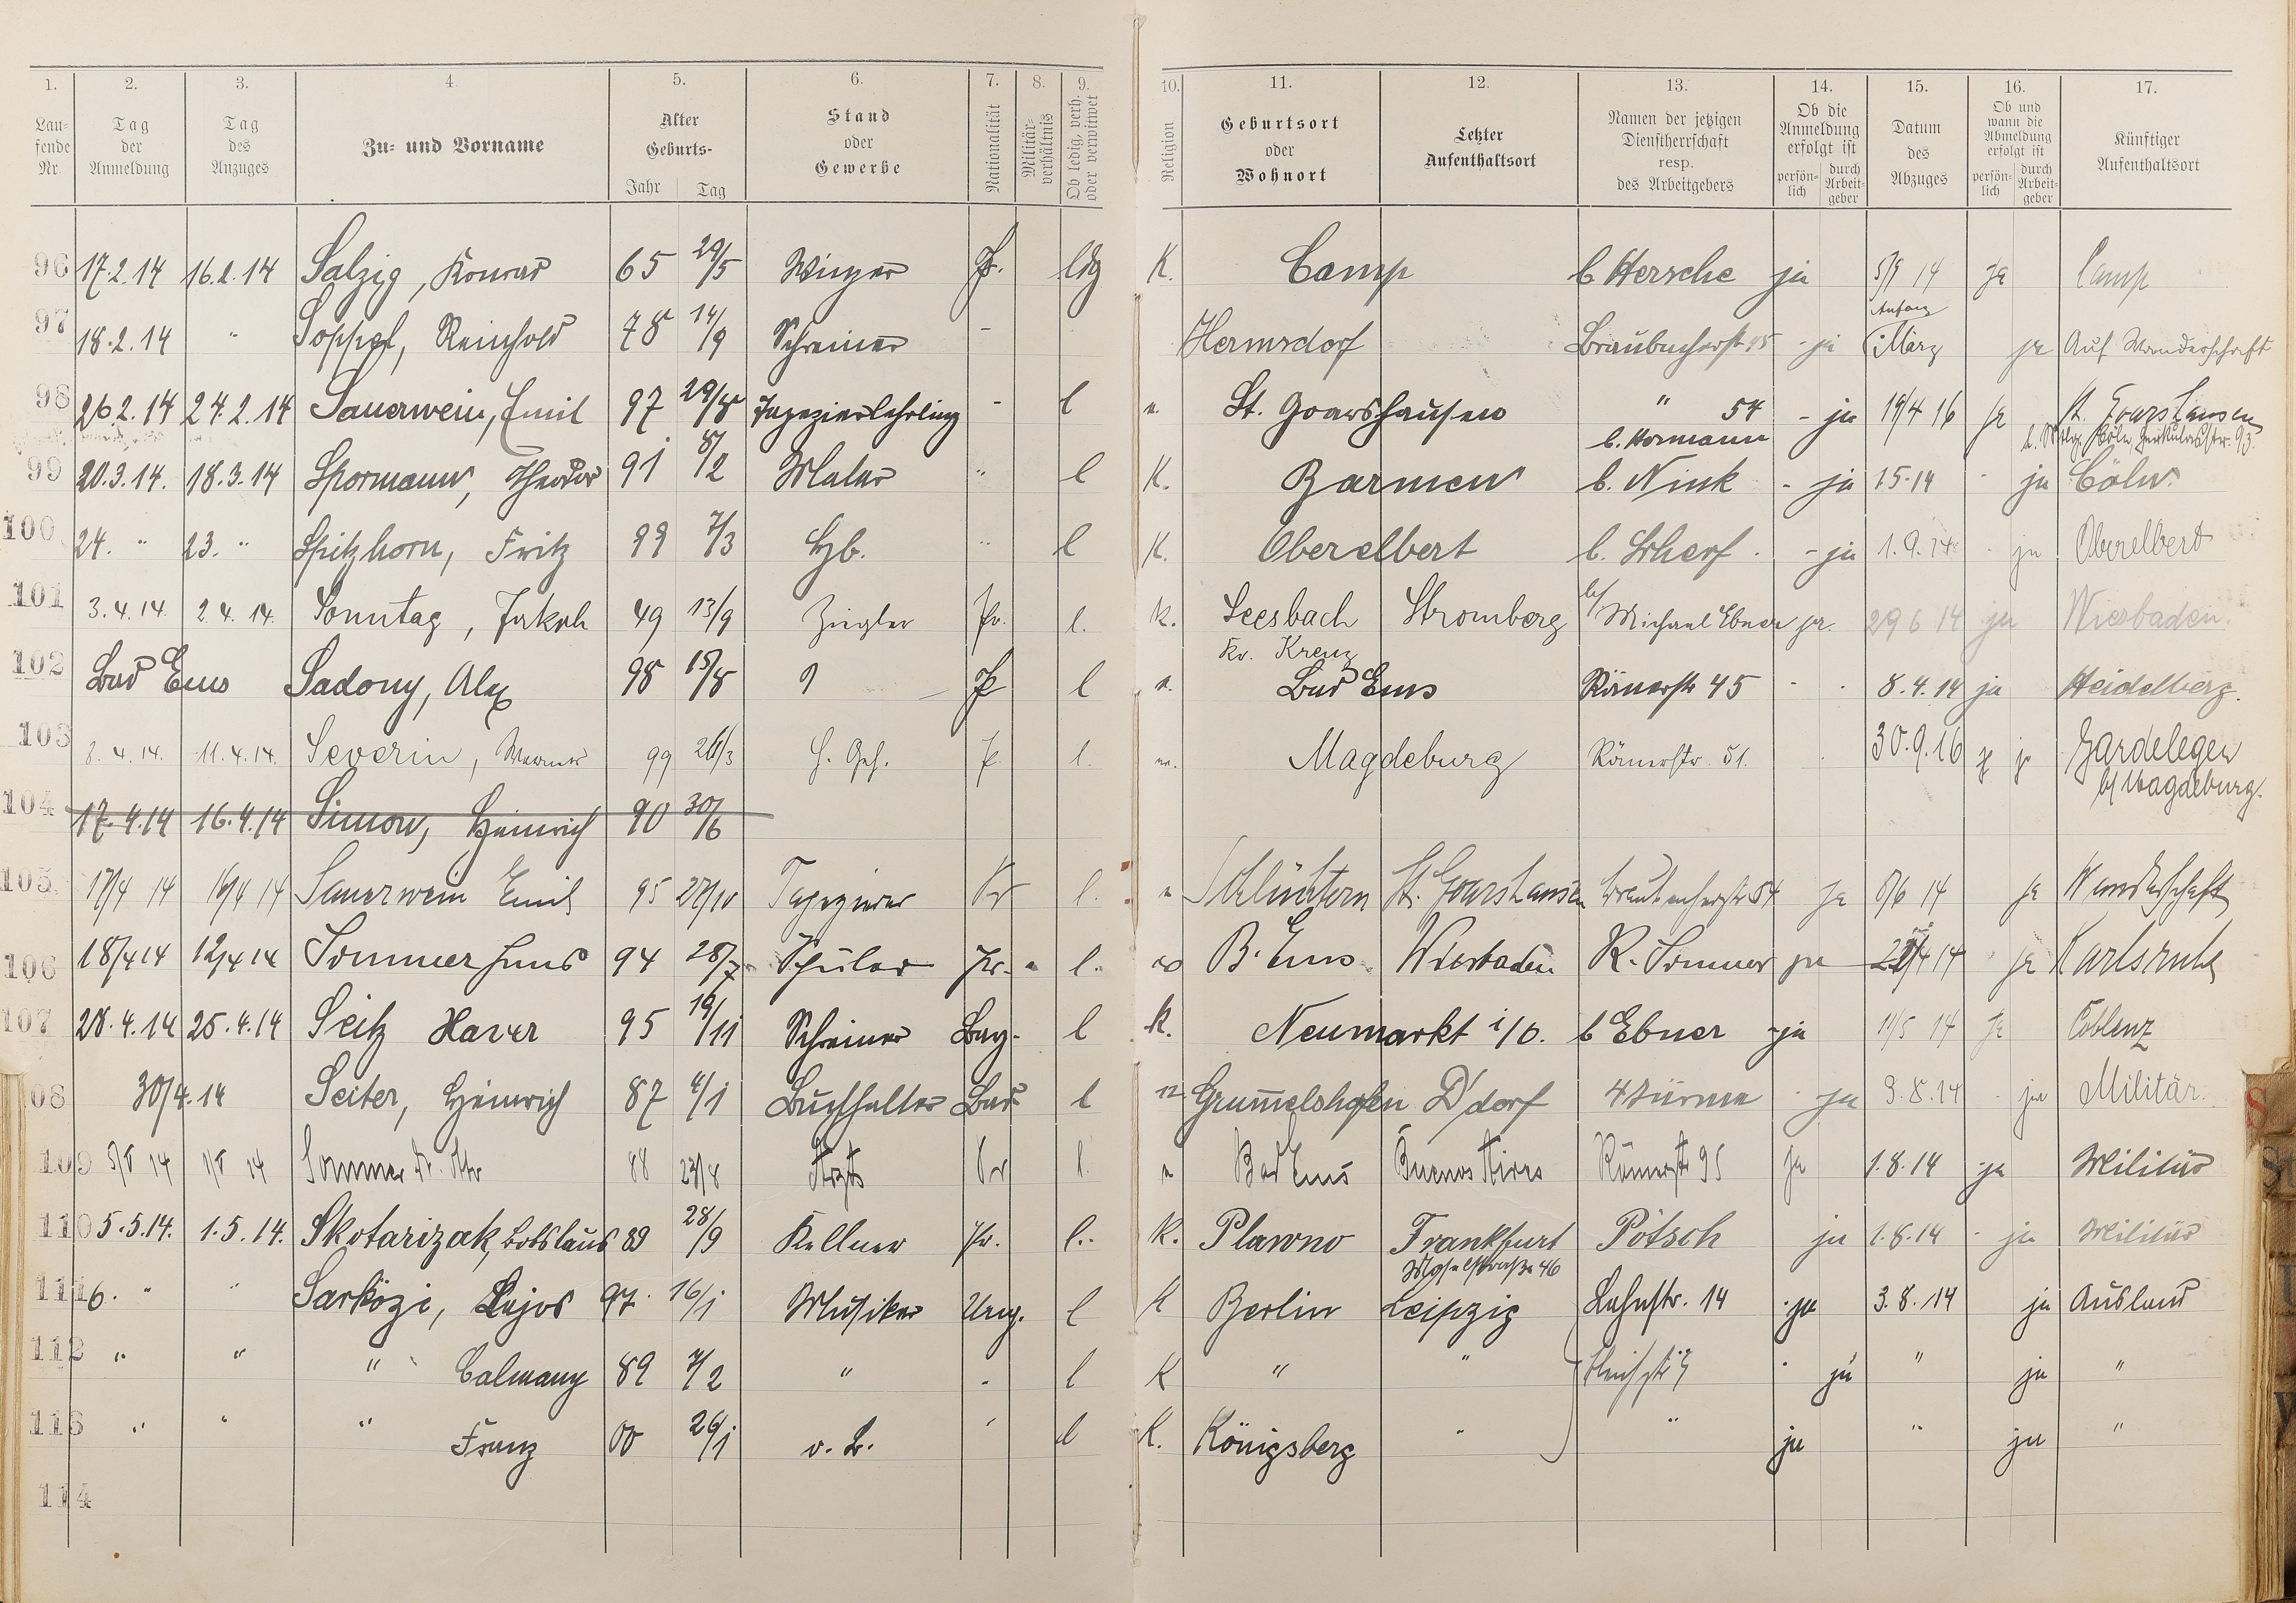 1. 2. 3. 4. 5. 6. 7. 8. 9. 10. 11. 12. 13. 14. 15. 16. 17.
Lau-
fende
Nr.
Tag
der
Anmeldung
Tag
des
Anzuges
Zu- und Vorname
Alter
Geburts-
Jahr Tag
Stand
oder
Gewerbe
Nationalität
Militär-
verhältnis
Ob ledig, verh.
oder verwitwet
Religion
Geburtsort
oder
Wohnort
Letzter
Aufenthaltsort
Namen der jetzigen
Dienstherrschaft
resp.
des Arbeitgebers
Ob die
Anmeldung
erfolgt ist
persön-
lich
durch
Arbeit-
geber
Datum
des
Abzuges
Ob und
wann die
Abmeldung
erfolgt ist
persön-
lich
durch
Arbeit-
geber
Künftiger
Aufenthaltsort
96 17.2.14 16.2.14 Salzig, Konrad 65 29/5 Winzer Pr. ldg K. Camp b Hersche ja 5/9 14 ja Camp
97 18.2.14 " Soppel, Reinhold 78 14/9 Schreiner - Hermsdorf Braubacherstr 45 - ja Anfang März ja Auf Wanderschaft
98 26 2.14 24.2.14 Sauerwein, Emil 97 29/8 Tapezierlehrling - l St. Goarshausen " 54 - ja 19/4 16 ja St. Goarshausen
b. Hermann
99 20.3.14. 18.3.14 Spormann, Theodor 91 8/2 Maler " l K. Barmen b. Nink - ja 1.5.14 - ja Cöln
100 24. " 23. " Spitzhorn, Fritz 99 7/3 Hb. " l K. Oberelbert b. Scherf - ja 1.9.14 - ja Oberelbert
101 3.4.14. 2.4.14. Sonntag, Jakob 49 13/9 Ziegler Pr. l. K. Seesbach Stromberg b/ Michael Ebner ja. 29 6 14 ja Wiesbaden.
Kr. Kreuz
102 Bad Ems Sadony, Alex 98 15/8 Pr l Bad Ems Römerstr 45 - - 8.4.14 ja Heidelberg.
103 8.4.14. 11.4.14. Severin, Werner 99 26/3 l. Magdeburg Römerstr. 51. 30.9.16 ja Gardelegen
b/ Magdeburg.
104 17.4.14 16.4.14 Simon, Heinrich 90 30/6
105 17/4 14 16/4 14 Sauerwein Emil 95 27/10 Tapezierer Pr l. Schlüchtern St. Goarshausen Braubacherstr 54 ja 8/6 14 ja Wanderschaft
106 18/4 14 12/4 14 Sommer Hans 94 28/7 Schüler Pr. l. B. Ems Wiesbaden R. Sommer ja 14 ja Karlsruhe
107 28.4.14 25.4.14 Seitz Xaver 95 19/11 Schreiner Bay. l K. Neumarkt i/O. b Ebner - ja 11/5 14 ja Coblenz
108 30/4.14 Seiter, Heinrich 87 4/1 Buchhalter Bad l Grumelshofen D'dorf 4 Türme - ja 3.8.14 - ja Militär
109 5/5 14 1/5 14 Sommer Dr. Otto 88 23/8 Arzt Pr l. Bad Ems Buenos Aires Römerstr 95 ja 1.8.14 ja Militär
110 5.5.14. 1.5.14. Skotarizak, Boleslaus 89 28/9 Kellner Pr. l. K. Plawno Frankfurt Pötsch ja 1.8.14 - ja Militär
Moselstraße 46
111 6. " " Sarközi, Lajos 97 16/1 Musiker Ung. l K Berlin Leipzig Lahnstr. 14 ja 3.8./14 ja Ausland
112 " " " Calmany 89 7/2 " " l K " " ja " ja "
113 " " " Franz 00 26/1 v. B. " l K. Königsberg " " ja " ja "
114